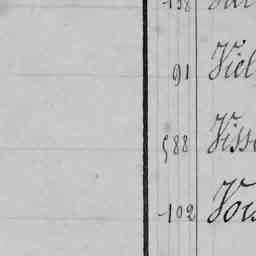 138
91 Viel
588 Viss
102 Vois